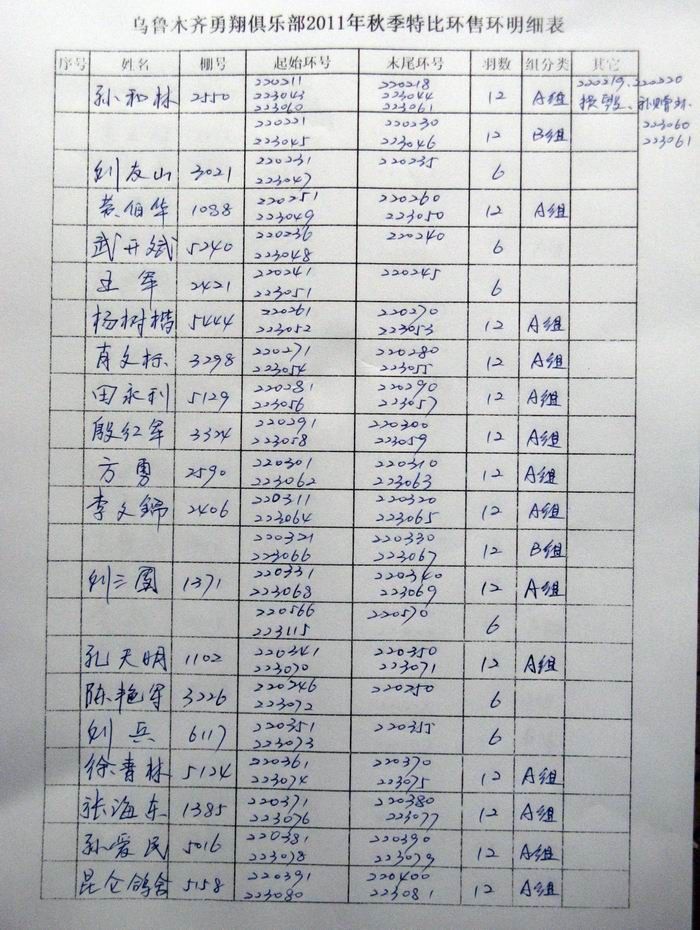 乌鲁木齐勇翔俱乐部2011年秋季特比环售环明细表
序号 姓名 棚号 起始环号 末尾环号 羽数 组分类 其它
孙和林 2550 220211 220218 12 A组 220219、220220
223043 223044 损毁、补赠环
223060 223061
220221 220230 12 B组 223060
223045 223046 223061
刘友山 3021 220231 220235 6
223047
伯华 1088 220251 220260 12 A组
223049 223050
武开斌 5240 220236 220240 6
223048
王军 2421 220241 220245 6
223051
杨树楷 5444 220261 220270 12 A组
223052 223053
肖文标 3298 220271 220280 12 A组
223054 223055
田永利 5129 220281 220290 12 A组
223056 223057
殷红军 3324 220291 220300 12 A组
223058 223059
方勇 2590 220301 220310 12 A组
223062 223063
李文锦 2406 220311 220320 12 A组
223064 223065
220321 220330 12 B组
223066 223067
刘三园 1371 220331 220340 12 A组
223068 223069
220566 220570 6
223115
孔天明 1102 220341 220350 12 A组
223070 223071
陈艳军 3226 220246 220250 6
223072
刘兵 6117 220351 220355 6
223073
徐春林 5124 220361 220370 12 A组
223074 223075
张海东 1385 220371 220380 12 A组
223076 223077
孙爱民 5016 220381 220390 12 A组
223078 223079
昆仑鸽舍 5158 220391 220400 12 A组
223080 223081